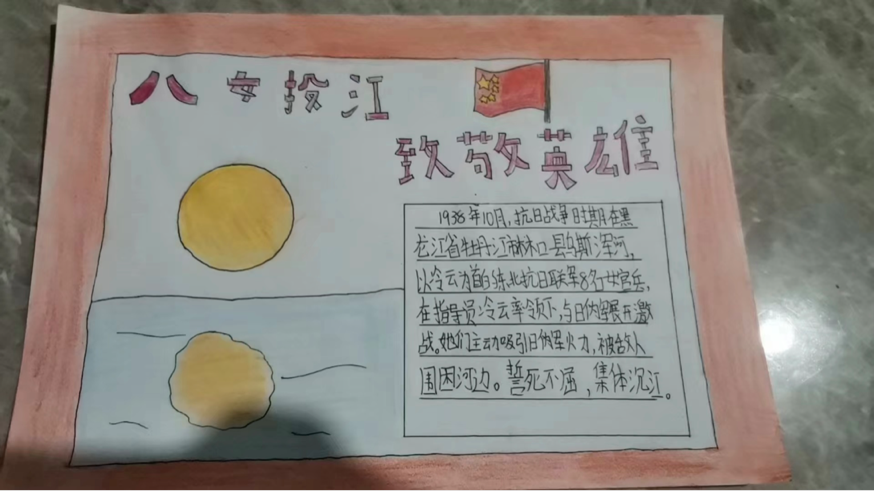 八女投江
致敬英雄
1938年10月,抗日战争时期在黑
龙江省牡丹江市林口县乌斯浑河,
以冷云为首的东北抗日联军8名女官兵,
在指导员冷云率领下,与日伪军展开激
战。她们主动吸引日伪军火力,被敌人
围困河边。誓死不屈,集体沉江。